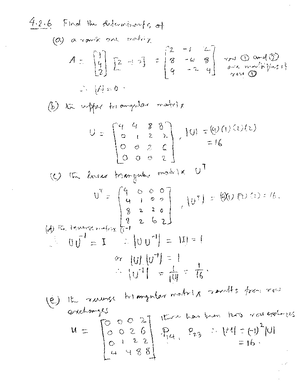 4.2.6 Find the determinants of
(a) a rank one matrix
A = [1 4 2] [2 -1 2] = [2 -1 2
8 -4 8
4 -2 4] row
row ①
∴ |A| = 0.
(b) the upper triangular matrix
U = [4 4 8 8
0 1 2 2
0 0 2 6
0 0 0 2], |U| = (4)(1)(2)(2)
= 16
(c) the lower triangular matrix U^T
U^T = [4 0 0 0
4 1 0 0
8 2 2 0
8 2 6 2], |U^T| = = 16.
(d) the inverse matrix U^-1
∴ U U^-1 = I ∴ |U U^-1| = |I| = 1
or |U| |U^-1| = 1
∴ |U^-1| = 1/|U| = 1/16.
(e) the reverse triangular matrix results from row
exchanges
M = [0 0 0 2
0 0 2 6
0 1 2 2
4 4 8 8] there has been two row exchanges
∴ = (-1)^2 |U|
= 16.